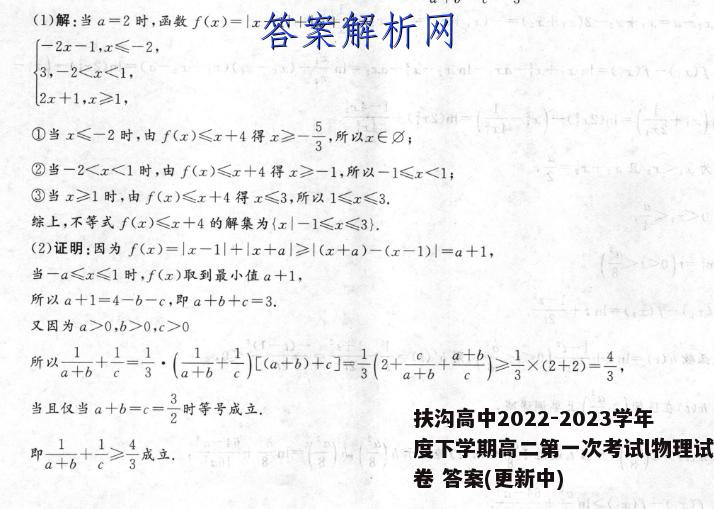 (1)解:当 a=2 时,函数 f(x)=|x
答案解析网
{-2x-1,x≤-2,
3,-2<x<1,
2x+1,x≥1,
①当 x≤-2 时,由 f(x)≤x+4 得 x≥-5/3,所以x∈∅;
②当-2<x<1 时,由 f(x)≤x+4 得 x≥-1,所以-1≤x<1;
③当 x≥1 时,由 f(x)≤x+4 得 x≤3,所以 1≤x≤3.
综上,不等式 f(x)≤x+4 的解集为{x|-1≤x≤3}.
(2)证明:因为 f(x)=|x-1|+|x+a|≥|(x+a)-(x-1)|=a+1,
当-a≤x≤1 时,f(x)取到最小值 a+1,
所以 a+1=4-b-c,即 a+b+c=3.
又因为 a>0,b>0,c>0
所以 1/(a+b)+1/c=1/3·(1/(a+b)+1/c)[(a+b)+c]=1/3(2+c/(a+b)+(a+b)/c)≥1/3×(2+2)=4/3,
当且仅当 a+b=c=3/2时等号成立.
即 1/(a+b)+1/c≥4/3成立.
扶沟高中2022-2023学年
度下学期高二第一次考试l物理试
卷 答案(更新中)